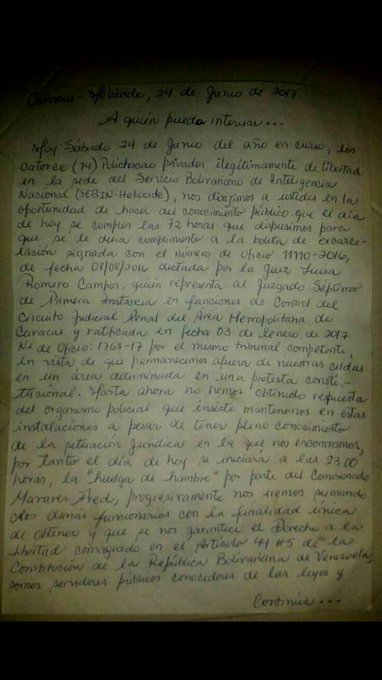 Caracas - Helicoide, 24 de Junio de 2017.
A quién pueda interesar...
Hoy Sábado 24 de Junio del año en curso, los
Catorce (14) Polichacao privados ilegítimamente de libertad
en la sede del Servicio Bolivariano de Inteligencia
Nacional (SEBIN-Helicoide), nos dirigimos a ustedes en la
oportunidad de hacer del conocimiento público que el día
de hoy se cumplen las 72 horas que dispusimos para
que se le diera cumplimiento a la boleta de excarce-
lación signada con el número de Oficio 11110-2016,
de fecha 08/08/2016 dictada por la Juez Luisa
Romero Campos, quién representa al Juzgado Septimo
de Primera Instancia en funciones de Control del
Circuito Judicial Penal del Area Metropolitana de
Caracas y ratificada en fecha 03 de Enero de 2017
Nº de Oficio: 1768-17 por el mismo tribunal competente,
en vista de que permanecimos afuera de nuestras celdas
en un área determinada en una protesta consti-
tucional. Hasta ahora no hemos obtenido respuesta
del organismo policial que insiste mantenernos en estas
instalaciones a pesar de tener pleno conocimiento
de la situación Jurídica en la que nos encontramos,
por tanto el día de hoy se iniciará a las 23:00
horas, la "huelga de hambre" por parte del Comisionado
Mavares Abed, progresivamente nos iremos sumando
los demás funcionarios con la finalidad única
de obtener y que se nos garantice el Derecho a la
libertad consagrado en el Artículo 44 #5 de la
Constitución de la República Bolivariana de Venezuela,
somos servidores públicos conocedores de las leyes y
Continúa...